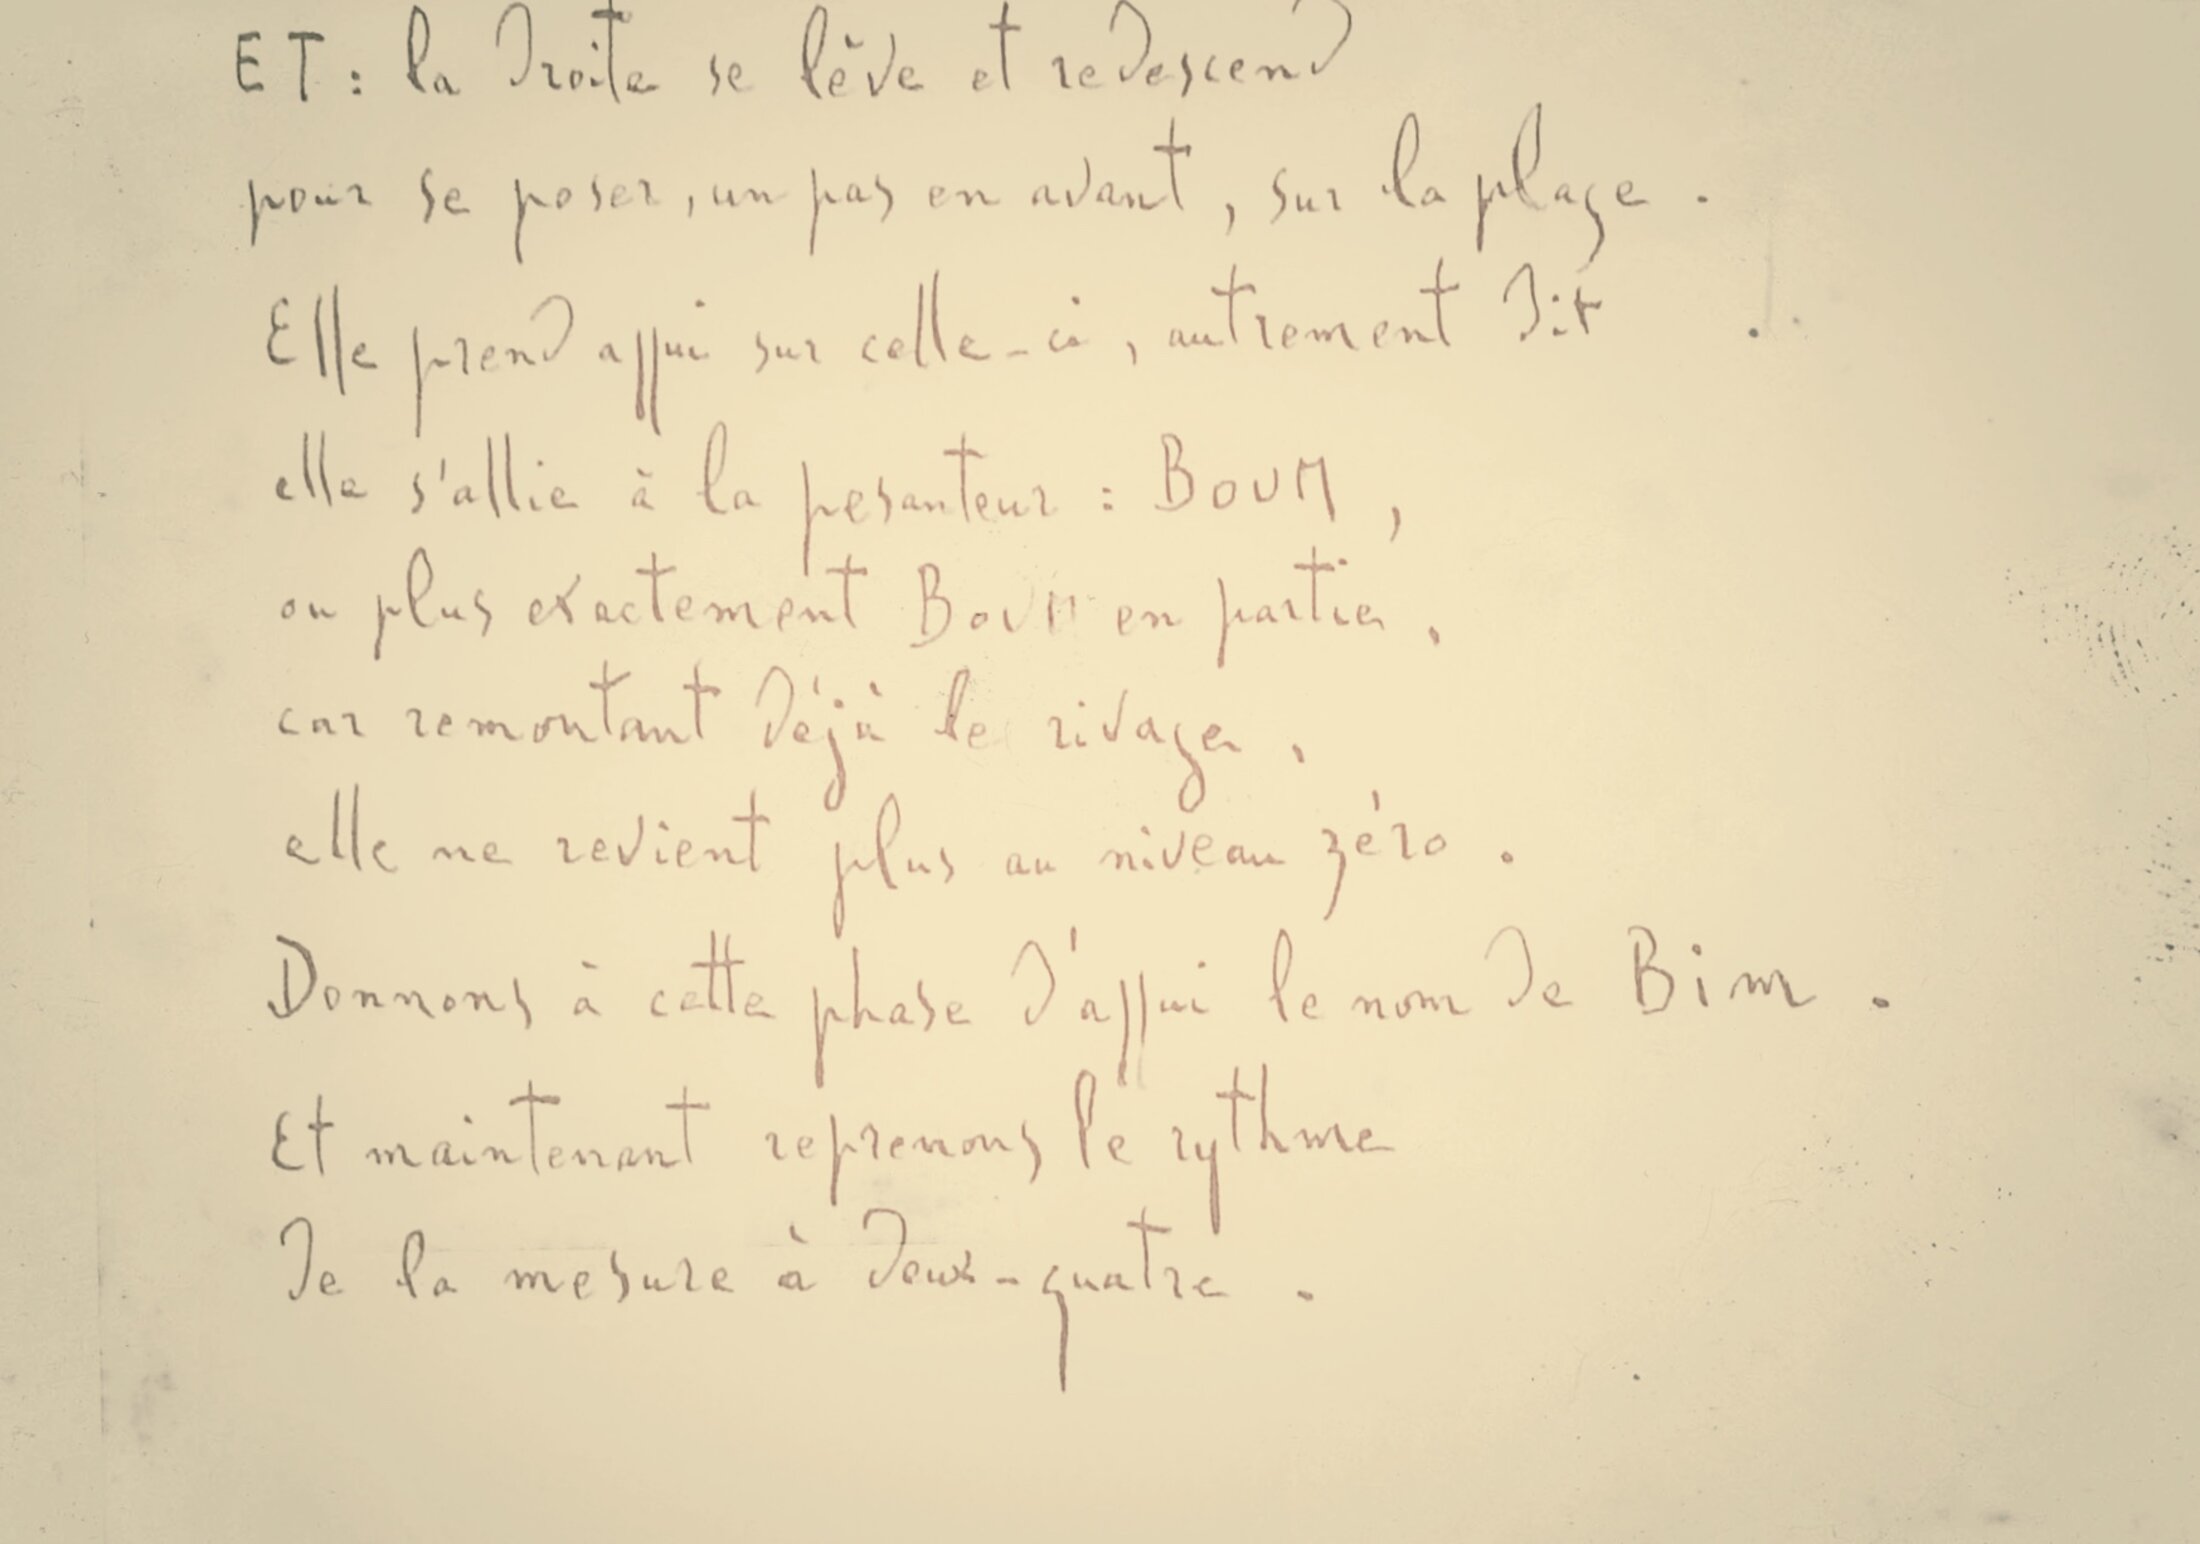 ET : la droite se lève et redescend
pour se poser, un pas en avant, sur la plage.
Elle prend appui sur celle-ci, autrement dit
elle s'allie à la pesanteur : BOUM,
ou plus exactement BOUM en partie,
car remontant déjà le rivage,
elle ne revient plus au niveau zéro.
Donnons à cette phase d'appui le nom de Bim.
Et maintenant reprenons le rythme
de la mesure à deux-quatre.